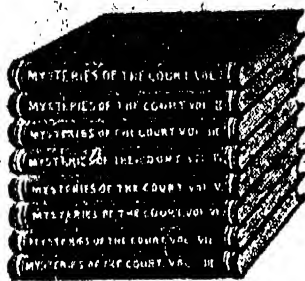 MYSTERIES OF THE COURT VOL I
MYSTERIES OF THE COURT VOL II
MYSTERIES OF THE COURT VOL III
MYSTERIES OF THE COURT VOL
MYSTERIES OF THE COURT VOL V
MYSTERIES OF THE COURT VOL VI
MYSTERIES OF THE COURT VOL VII
MYSTERIES OF THE COURT VOL